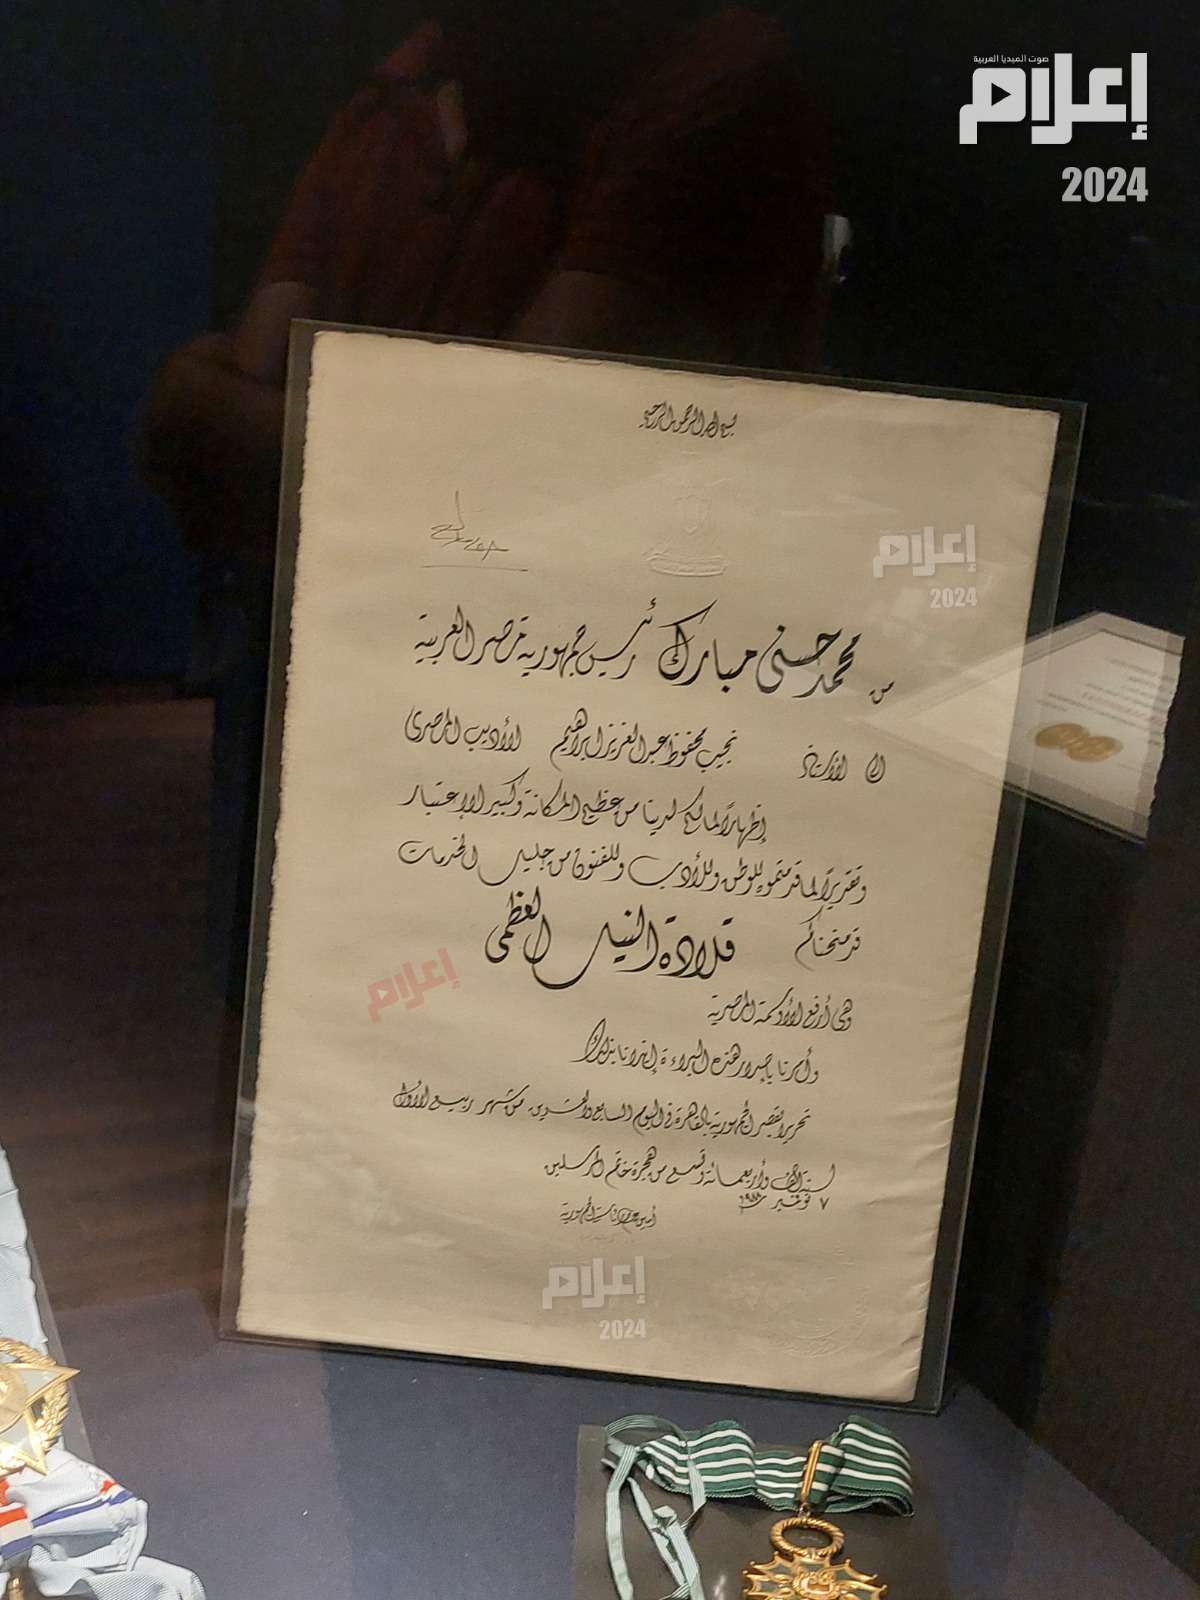 صوت الميديا العربية
إعلام
2024
بسم الله الرحمن الرحيم
إعلام
2024
من محمد حسنى مبارك رئيس جمهورية مصر العربية
إلى الأستاذ نجيب محفوظ عبد العزيز ابراهيم الأديب المصرى
إظهاراً لما لكم لدينا من عظيم المكانة وكبير الإعتبار
وتقديراً لما قدمتموه للوطن وللأدب وللفنون من جليل الخدمات
قد منحناكم قلادة النيل العظمى
إعلام
وهى أرفع الأوسمة المصرية
وأمرنا بإصدار هذه البراءة إيذانا بذلك
تحريراً بقصر الجمهورية بالقاهرة فى اليوم السابع والعشرين من شهر ربيع الأول
لسنة ألف وأربعمائة وتسع من هجرة خاتم المرسلين
٧ نوفمبر ١٩٨٨
أمين عام رئاسة الجمهورية
إعلام
2024